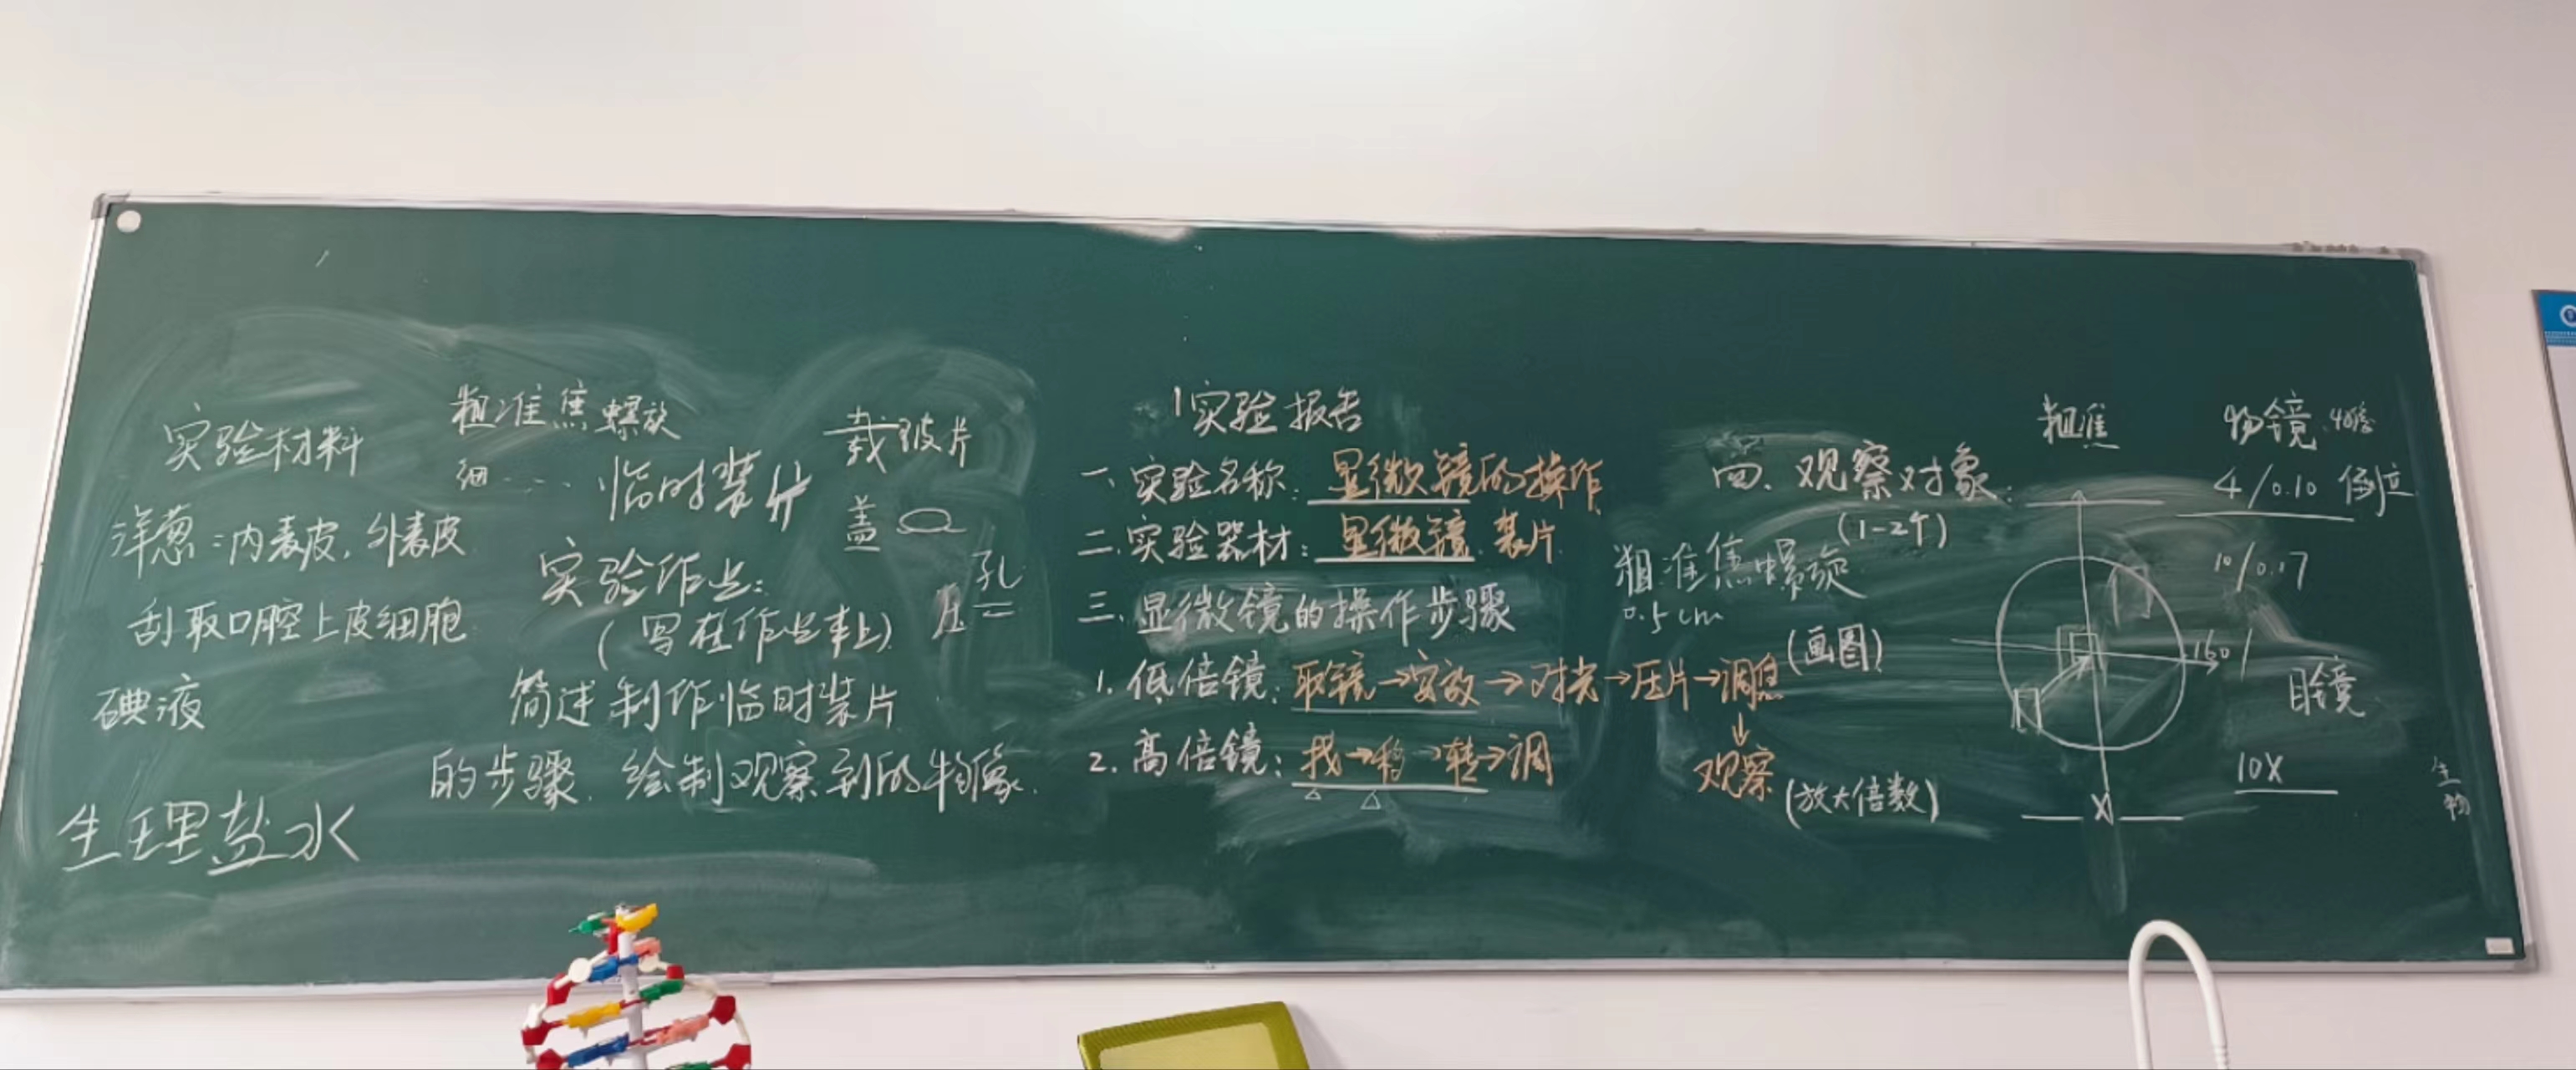 实验材料
洋葱：内表皮，外表皮
刮取口腔上皮细胞
碘液
生理盐水
粗准焦螺旋
细....
临时装片
载玻片
盖
孔
压
实验作业：
(写在作业本上)
简述制作临时装片
的步骤，绘制观察到的物像.
实验报告
一、实验名称：显微镜的操作
二、实验器材：显微镜、装片
三、显微镜的操作步骤
1. 低倍镜：取镜→安放→对光→压片→调焦
↓
观察
2. 高倍镜：找→移→转→调
四、观察对象：
(1-2个)
粗准焦螺旋
0.5cm
(画图)
(放大倍数)
粗准焦
物镜
4/0.10 倒立
10/0.17
160/
目镜
10X
生物